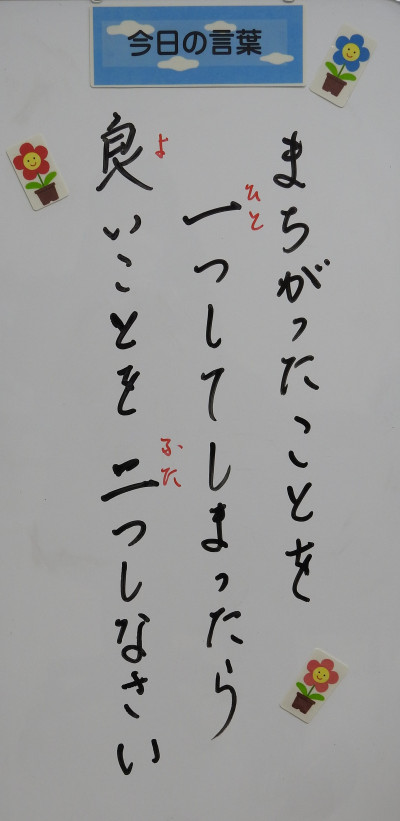 今日の言葉
まちがったことを
一つしてしまったら
ひと
良いことを二つしなさい
よ
ふた